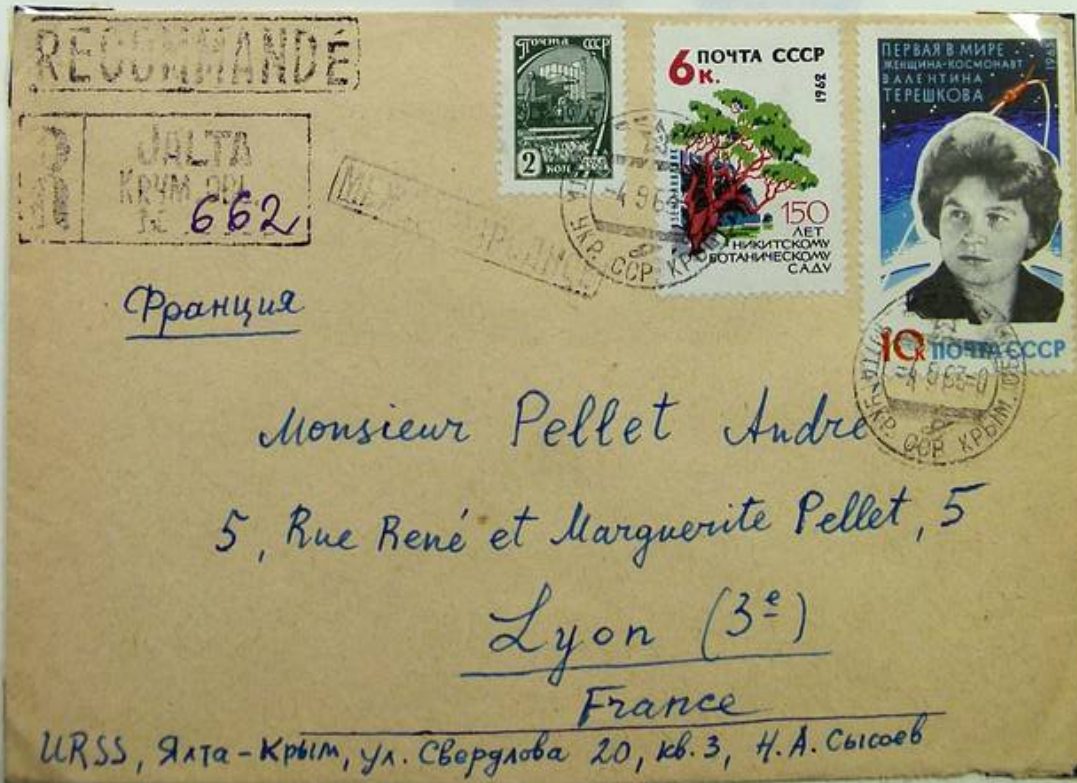 RECOMMANDÉ
R
JALTA
662
Почта СССР
2
КОП
1961
6 К. ПОЧТА СССР
1962
150
ЛЕТ
НИКИТСКОМУ
БОТАНИЧЕСКОМУ
САДУ
ПЕРВАЯ В МИРЕ
ЖЕНЩИНА-КОСМОНАВТ
ВАЛЕНТИНА
ТЕРЕШКОВА
10 К ПОЧТА СССР
УКР. ССР КРЫМ.
ЯЛТА УКР. ССР КРЫМ. ОБЛ
Франция
Monsieur Pellet André
5, Rue René et Marguerite Pellet, 5
Lyon (3e)
France
URSS, Ялта-Крым, ул. Свердлова 20, кв. 3, Н. А. Сысоев